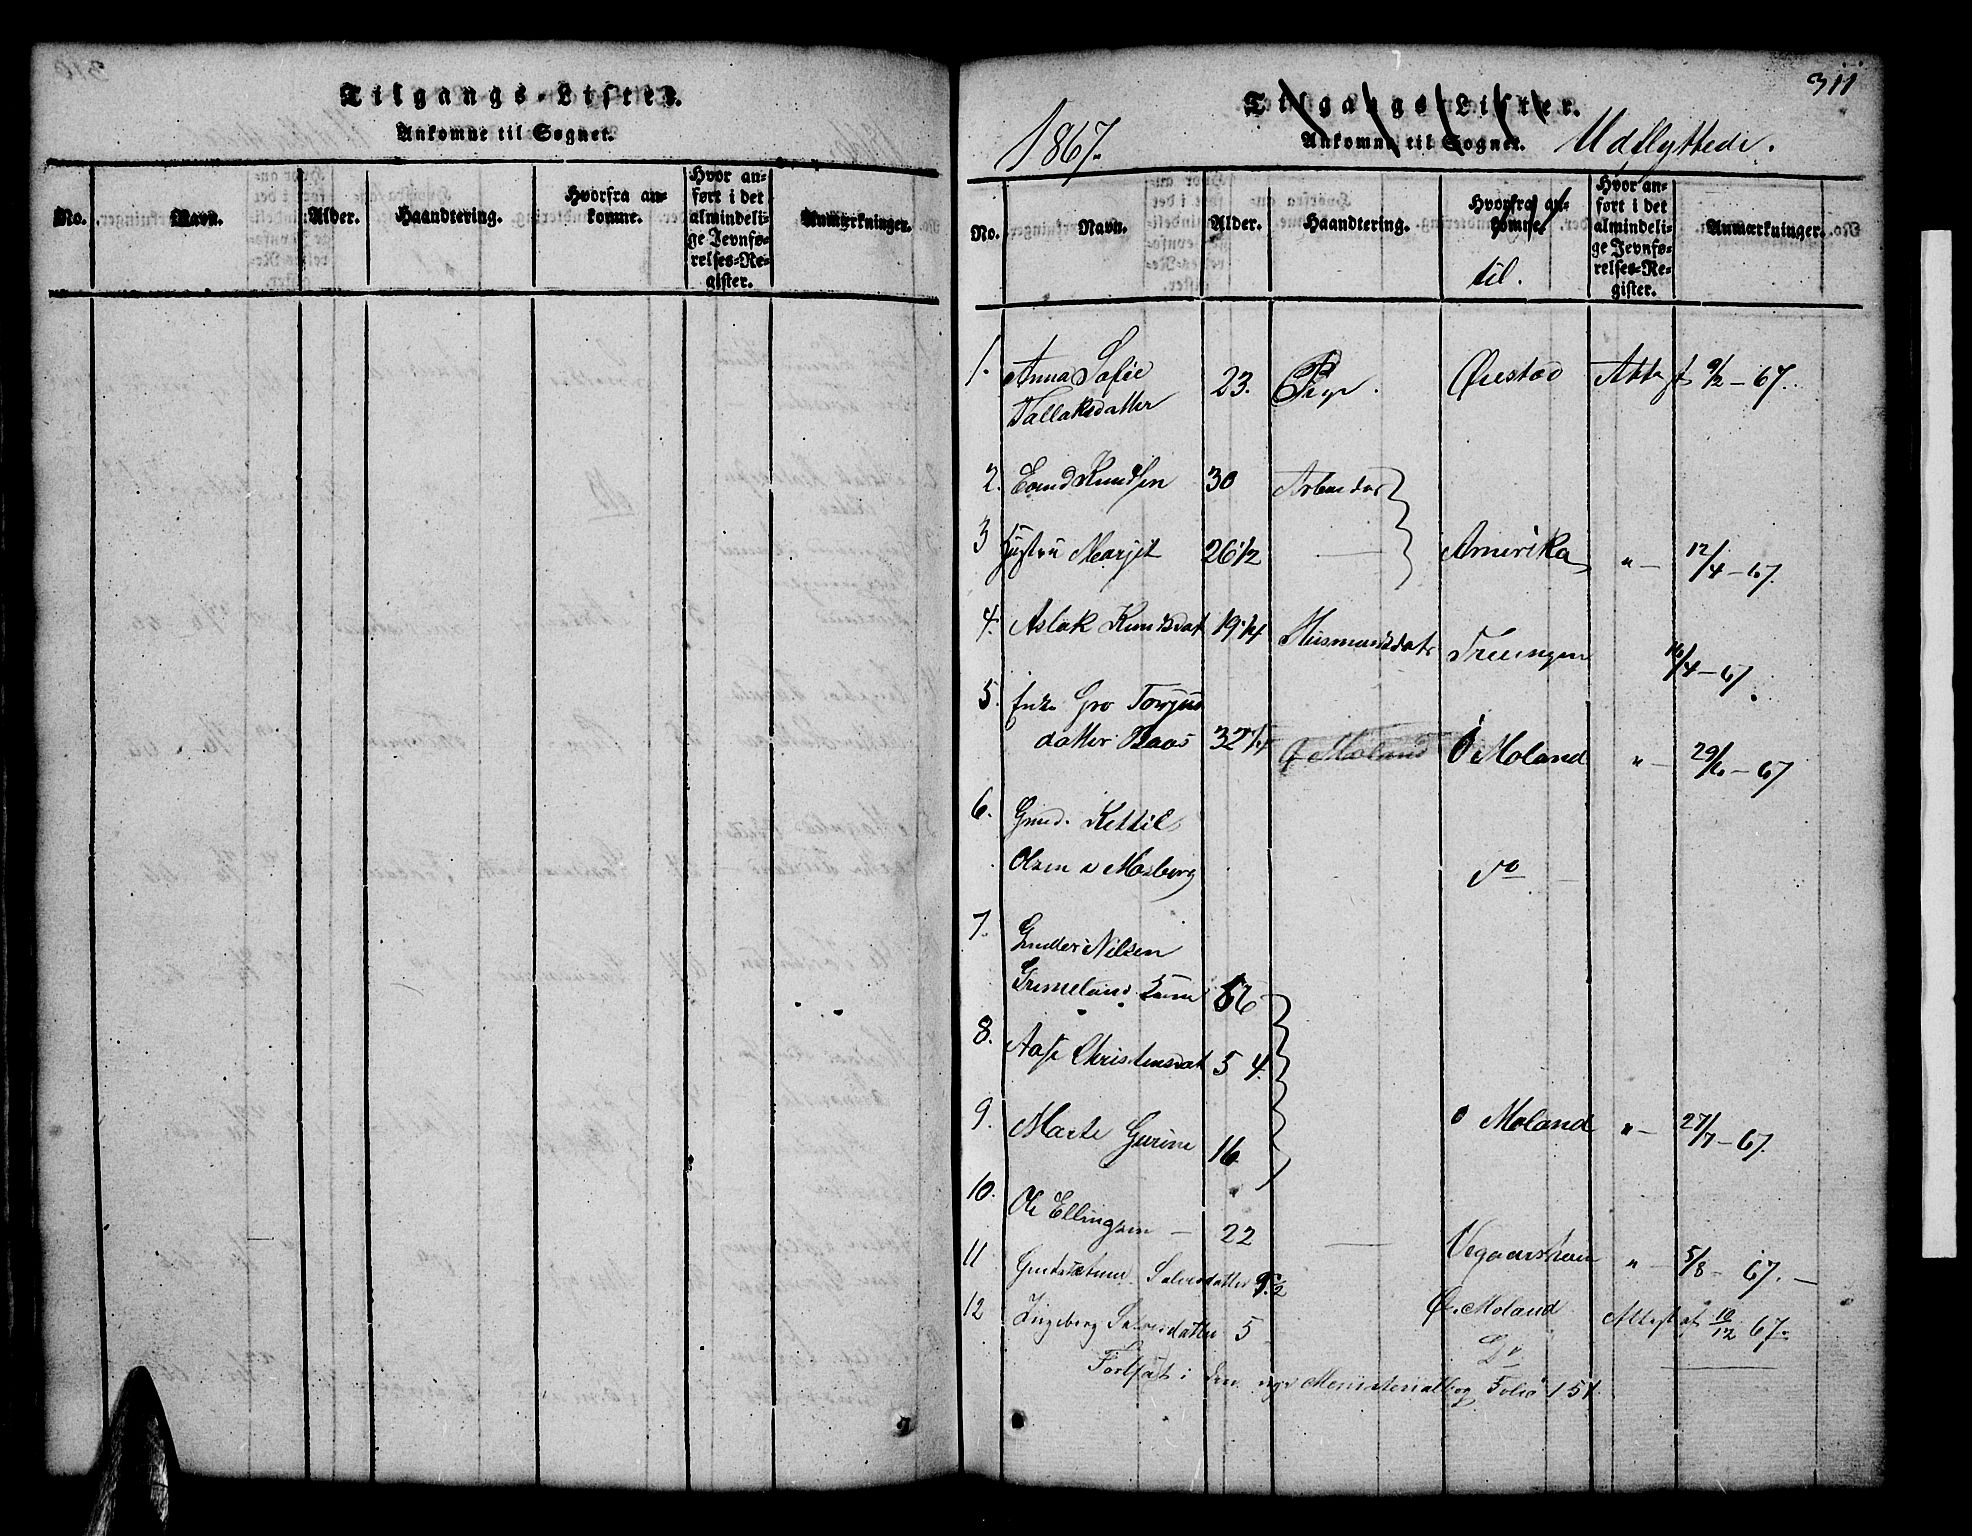 Tilgangs-Lister.
Ankomne til Sognet.
No.
Navn.
Alder.
Haandtering.
Hvorfra an-
komne.
Hvor an-
ført i det
almindeli-
ge Jevnfø-
relses-Re-
gister.
Anmærkninger.
311
Tilgangs-Lister.
1867.
Ankomne til Sognet.
Udflyttede.
No.
Navn.
Alder.
Haandtering.
Hvorfra an-
komne
til.
Hvor an-
ført i det
almindeli-
ge Jevnfø-
relses-Re-
gister.
Anmærkninger.
1. Anna Sofie
Tallaksdatter 23. Pige. Øiestad Attest 9/2-67.
2. Eivind Knudsen 30 Arbeider
3 Hustru Marjit 26 1/2 — Amerika " — 12/4-67.
4. Aslak Knudsdat 19 1/4 Husmandsdatr Treungen 16/4-67.
5. Enke Gro Torjus
datter Baas 32 1/4 Ø Moland Ø Moland " — 29/6-67
6. Gmd. Kettil
Olsen Mosberg do
7. Gunder Nilsen
Grimeland 56
8. Aase Christensdat 54
9. Marte Gurine 16 Ø Moland " — 27/7-67.
10. Ole Ellingsen — 22 — Vegaarsheien " — 5/8-67. —
11 Salvesdatter 9 1/2 Ø. Moland Attest af 10/12 67.
12 Ingeborg Salvesdatter 5 Do
Fortsat i den nye Ministerialbog Folio 151.